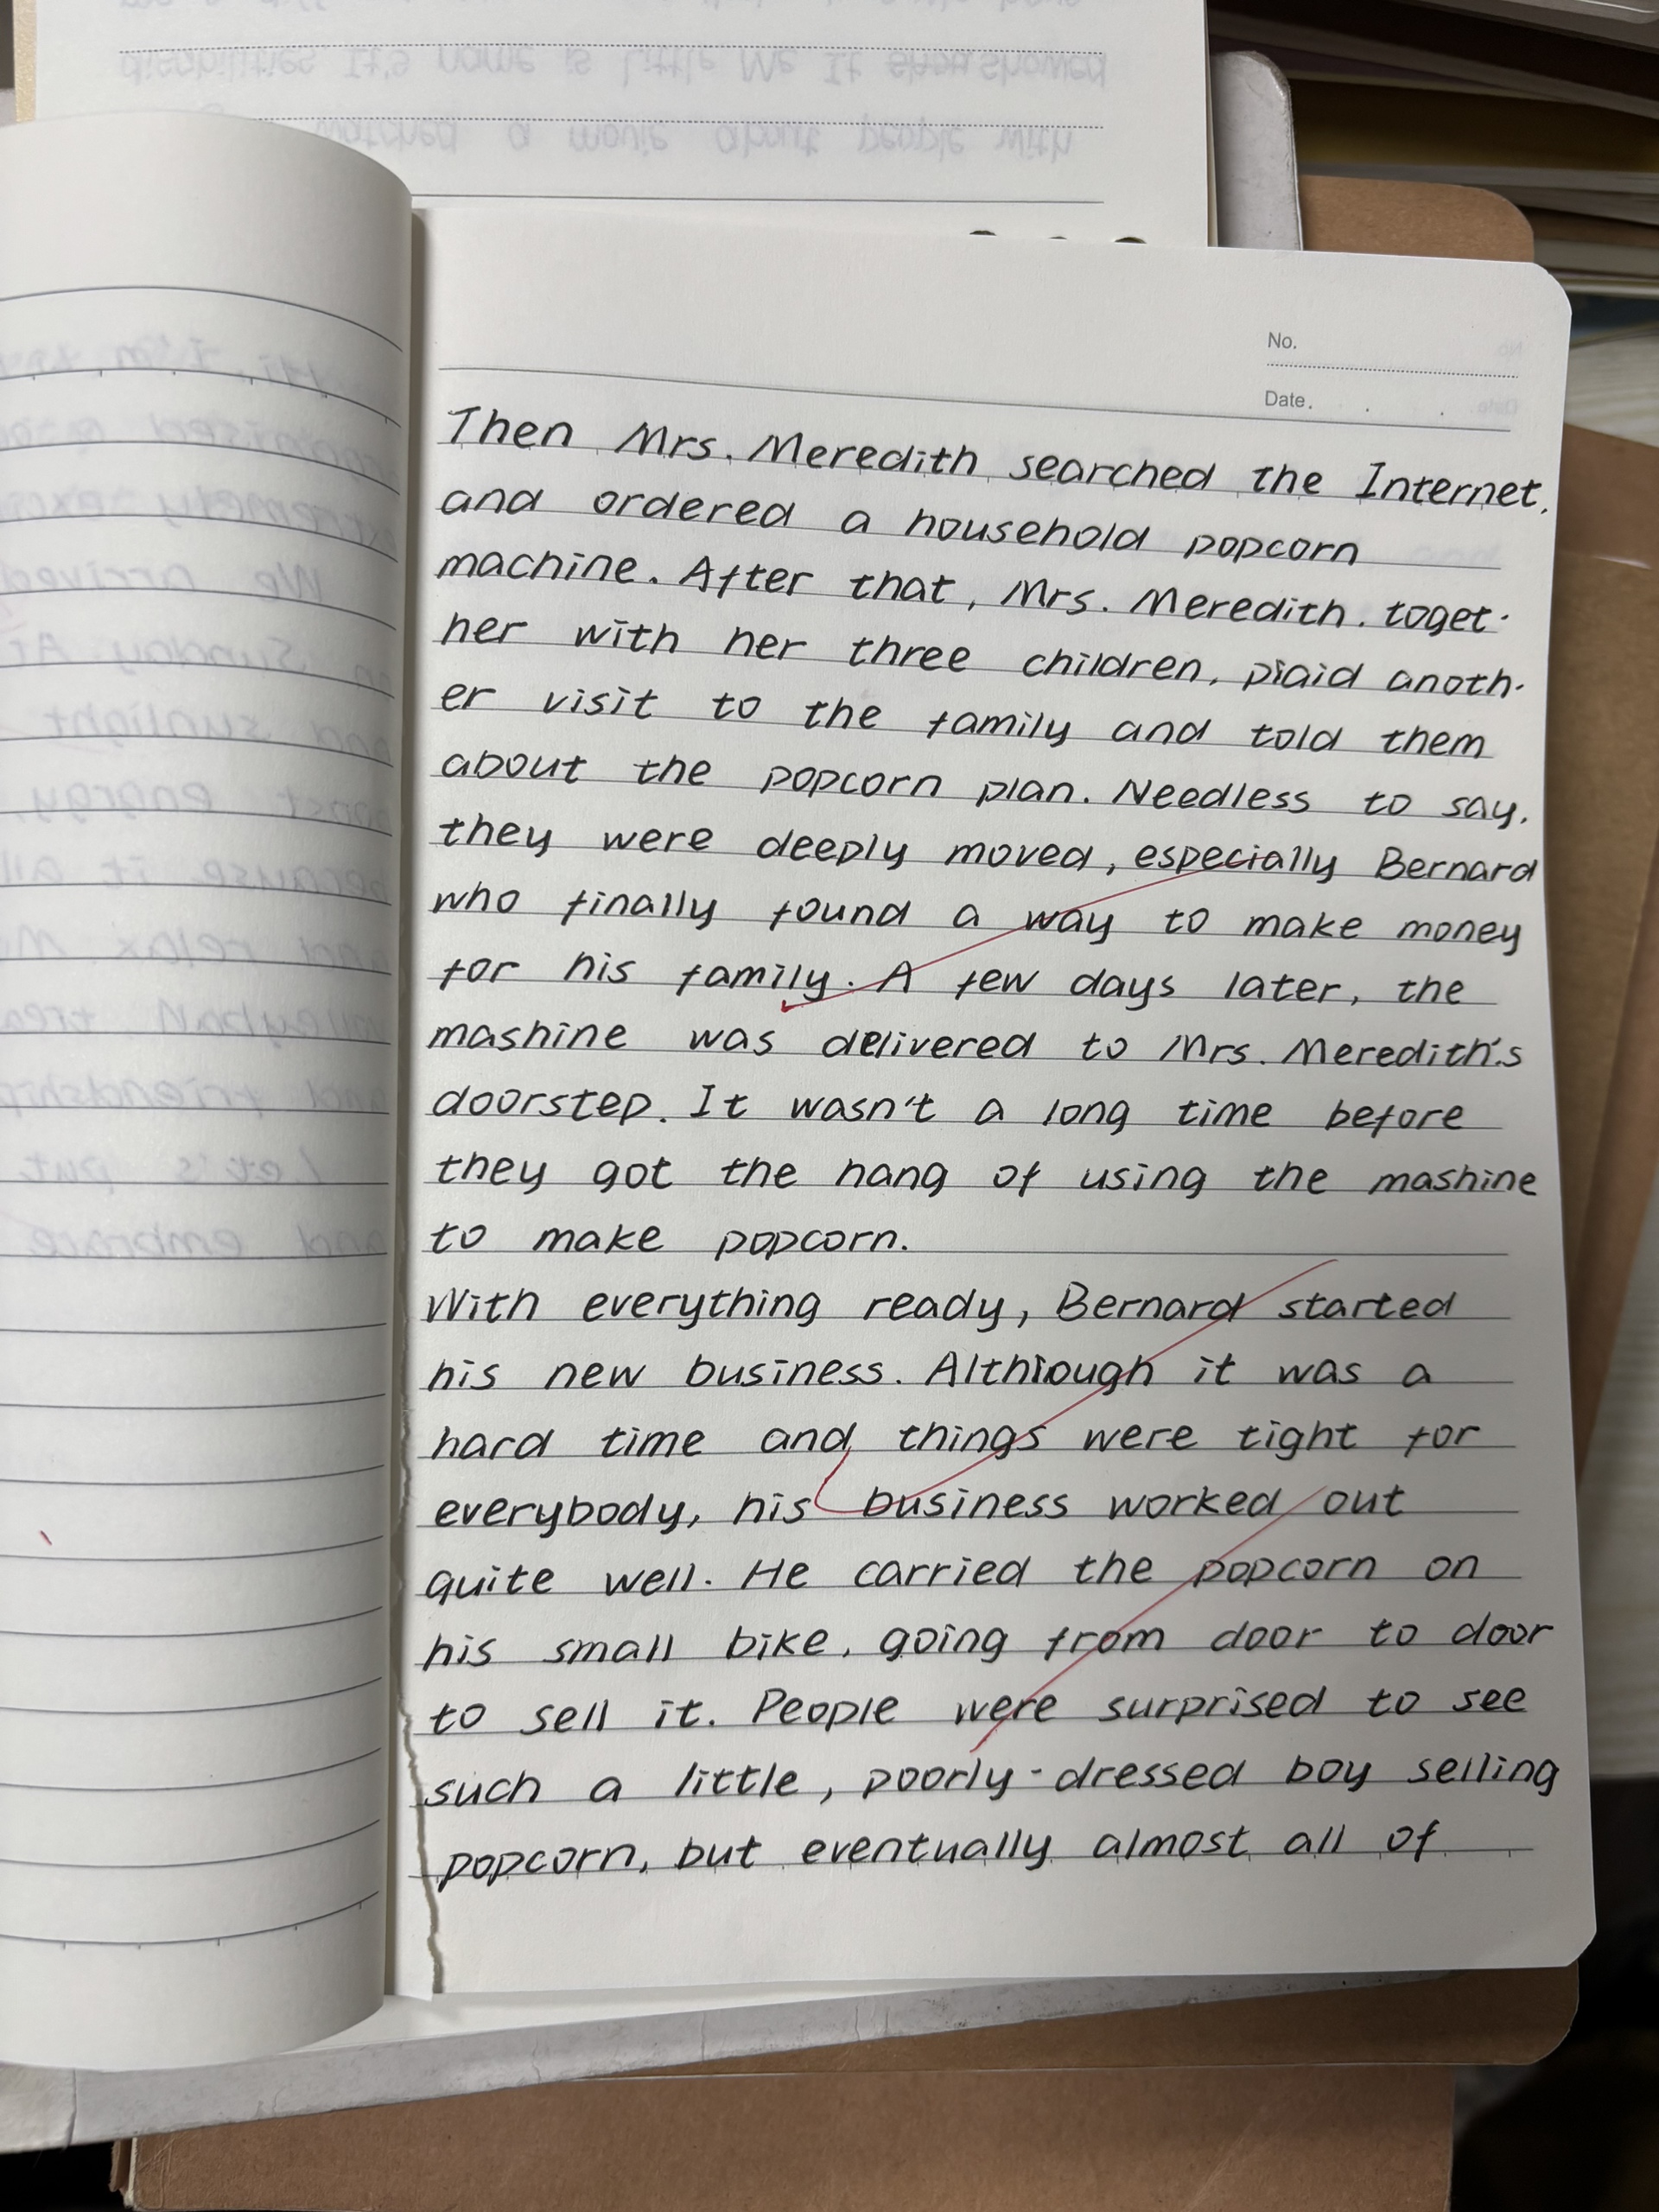 disabilities It's name is Little Me It showed
watched a movie about people with
No.
Date.
Then Mrs. Meredith searched the Internet,
and ordered a household popcorn
machine. After that, Mrs. Meredith. toget-
her with her three children, paid anoth-
er visit to the family and told them
about the popcorn plan. Needless to say,
they were deeply moved, especially Bernard
who finally found a way to make money
for his family. A few days later, the
mashine was delivered to Mrs. Meredith's
doorstep. It wasn't a long time before
they got the hang of using the mashine
to make popcorn.
With everything ready, Bernard started
his new business. Although it was a
hard time and things were tight for
everybody, his business worked out
quite well. He carried the popcorn on
his small bike, going from door to door
to sell it. People were surprised to see
such a little, poorly-dressed boy selling
popcorn, but eventually almost all of